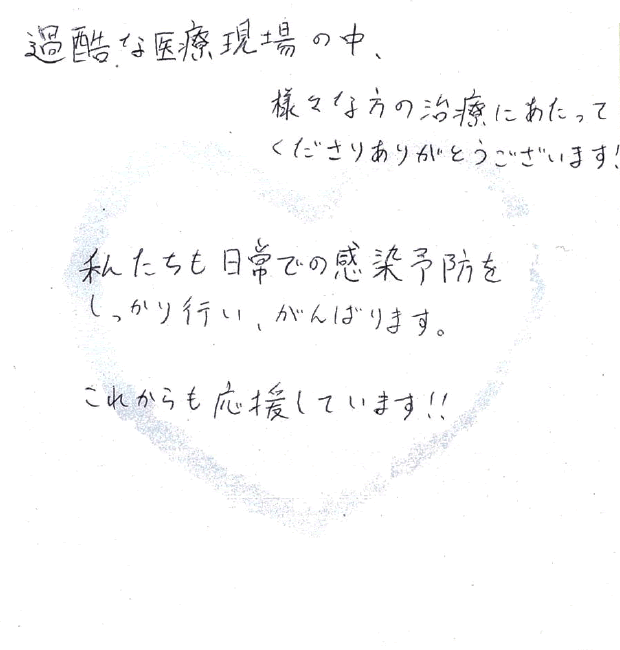 過酷な医療現場の中、
様々な方の治療にあたって
くださりありがとうございます!
私たちも日常での感染予防を
しっかり行い、がんばります。
これからも応援しています!!